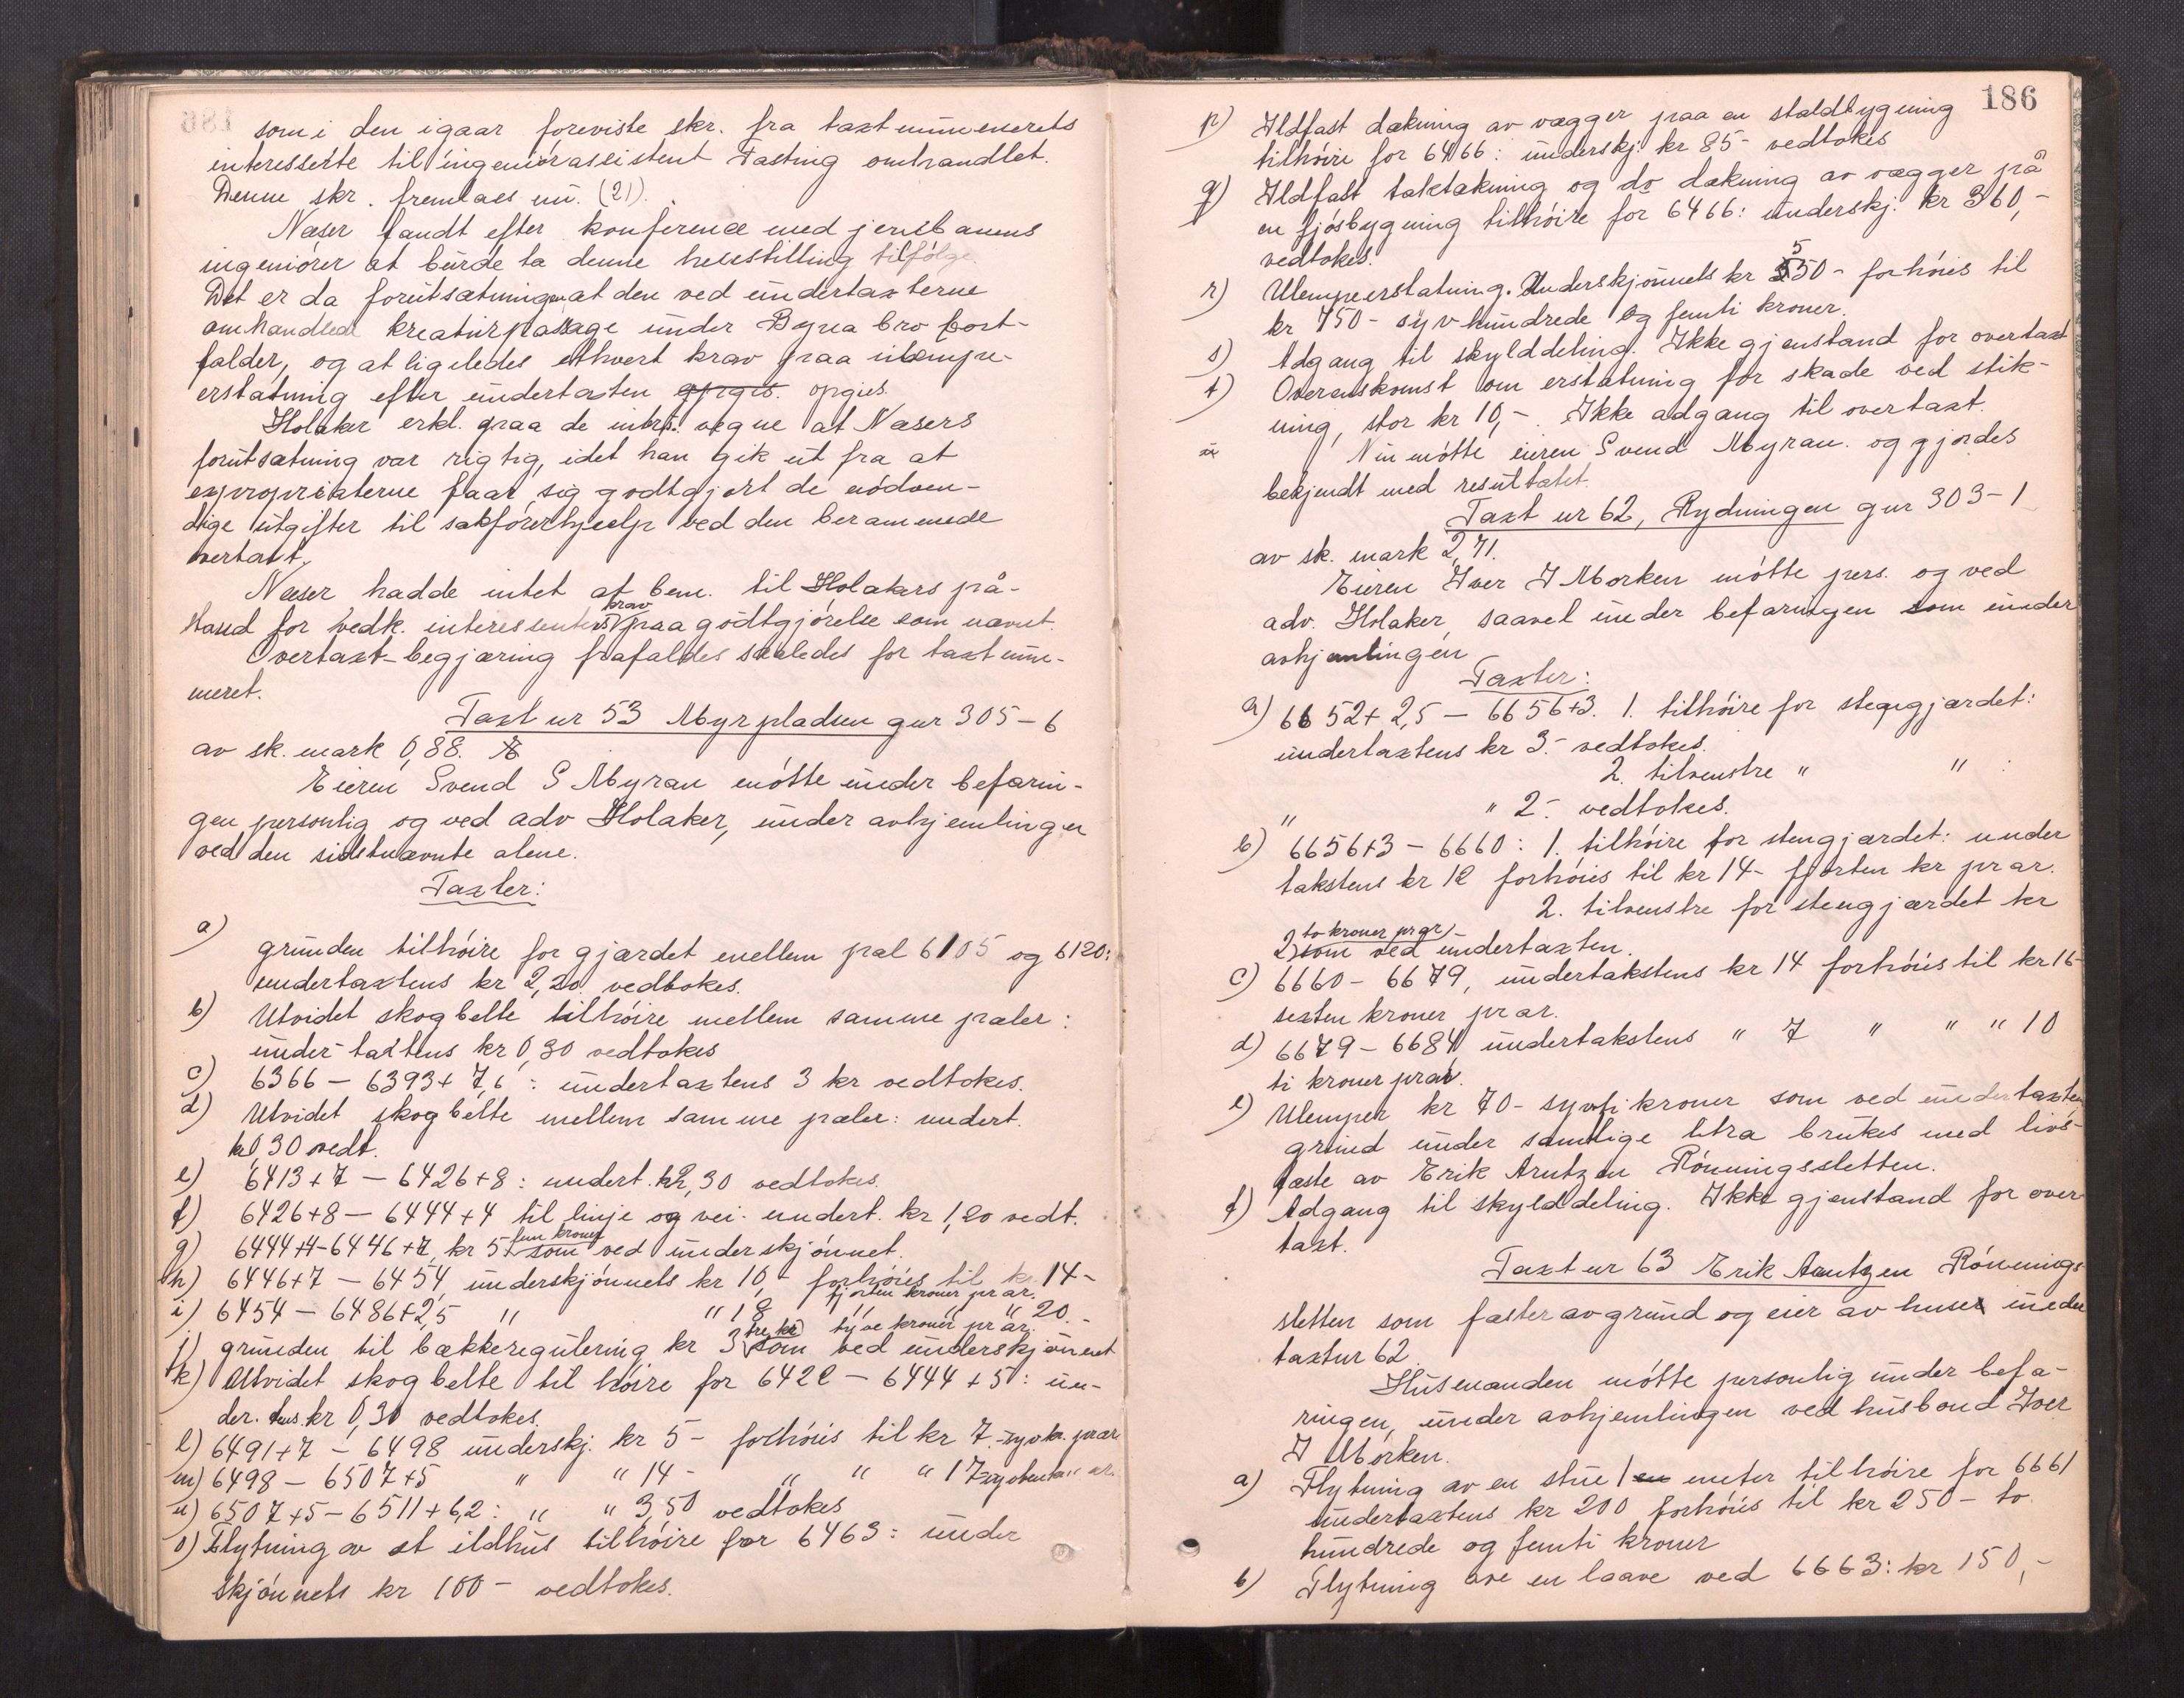 som i den igaar foreviste skr. fra taxtnummerets
interesserte til ingeniørassistent Tasting omhandlet.
Denne skr. fremlaes nu. (21).
Næser fandt efter konference med jernbanens
ingeniører at burde ta denne henstilling tilfølge.
Det er da forutsætningen at den ved undertaxterne
omhandled kreaturpassage under Byna bro bort-
falder, og at ligeledes ethvert krav paa ulempe-
erstatning efter undertaxten opgis. opgies.
Holaker erkl. paa de intrs. vegne at Næsers
forutsætning var rigtig, idet han gik ut fra at
expropriaterne faar sig godtgjort de nødven-
dige utgifter til sakførerhjælp ved den berammede
overtaxt.
Næser hadde intet at bem. til Holakers på-
stand for vedk. interessenters krav paa godtgjørelse som nævnt.
Overtaxt-begjæring frafaldes således for taxtnum-
meret.
Taxt nr 53 Myrpladsen gnr 305-6
av sk. mark 0,88.
Eieren Svend S Myran møtte under befarin-
gen personlig og ved adv Holaker, under avhjemlingen
ved den sidstnævnte alene.
Taxter:
a) grunden tilhøire for gjærdet mellem pæl 6105 og 6120:
undertaxtens kr 2,20 vedtokes.
b) Utvidet skogbelte tilhøire mellem samme pæler:
under-taxtens kr 0,30 vedtokes
c) 6366 - 6393+7,6: undertaxtens 3 kr vedtokes.
d) Utvidet skogbelte mellem samme pæler: undert.
kr 0,30 vedt.
e) 6413+7 - 6426+8: undert. kr 2,30 vedtokes.
f) 6426+8 - 6444+4 til linje og vei. undert. kr 1,20 vedt.
g) 6444+4-6446+7, kr 5 fem kroner som ved underskjønnet.
h) 6446+7 - 6454, underskjønnets kr 10,- forhøies til kr. 14-
fjorten kroner pr ar.
i) 6454 - 6486+2,5 " " 18 " " " 20.-
tyve kroner pr ar.
j) grunden til bækkeregulering kr 3 tre kr som ved underskjønnet
k) Utvidet skogbelte til høire for 6422 - 6444+5: un-
der. tens kr 0,30 vedtokes.
l) 6491+7 - 6498 underskj. kr 5- forhøies til kr 7.- syv kr. pr ar
m) 6498 - 6507+5 " " 14- " " " 17 sytten kr " ar.
n) 6507+5 - 6511+6,2: " " 3,50 vedtokes
o) Flytning av et ildhus tilhøire for 6463: under
skjønnets kr 100- vedtokes.
186
p) Ildfast dækning av vægger paa en staldbygning
tilhøire for 6466: underskj. kr 85- vedtokes
q) Ildfast taktækning og do dækning av vægger på
en fjøsbygning tilhøire for 6466: underskj. kr 360,-
vedtokes.
r) Ulempeerstatning. Underskjønnets kr 550- forhøies til
kr 750- syvhundrede og femti kroner.
s) Adgang til skylddeling. Ikke gjenstand for overtaxt
t) Overenskomst om erstatning for skade ved stik-
ning, stor kr 10,-. Ikke adgang til overtaxt.
Nu møtte eieren Svend Myran og gjordes
bekjendt med resultatet.
Taxt nr 62, Rydningen gnr 303-1
av sk. mark 2,71.
Eieren Iver I Morken møtte pers. og ved
adv. Holaker, saavel under befaringen som under
avhjemlingen
Taxter:
a) 6652+2,5 - 6656+3. 1. tilhøire for stengjærdet:
undertaxtens kr 3.- vedtokes.
2. tilvenstre " " :
" " 2.- vedtokes.
b) 6656+3 - 6660: 1. tilhøire for stengjærdet: under
takstens kr 12 forhøies til kr 14- fjorten kr pr ar.
2. tilvenstre for stengjærdet kr
2 to kroner pr ar som ved undertaxten.
c) 6660 - 6679, undertakstens kr 14 forhøies til kr 16-
sexten kroner pr ar.
d) 6679 - 6684, undertakstens " 7 " " " 10
ti kroner pr ar.
e) Ulemper kr 70- sytti kroner som ved undertaxten
grund under samtlige litra brukes med livs-
fæste av Erik Arntzen Rønningssletten.
f) Adgang til skylddeling. Ikke gjenstand for over-
taxt.
Taxt nr 63 Erik Arntzen Rønnings-
sletten som fæster av grund og eier av huser under
taxtnr 62
Husmanden møtte personlig under befa-
ringen, under avhjemlingen ved husbond Iver
I Morken.
a) Flytning av en stue 1 en meter tilhøire for 6661
undertaxtens kr 200 forhøies til kr 250- to
hundrede og femti kroner
b) Flytning av en laave ved 6663: kr 150,-